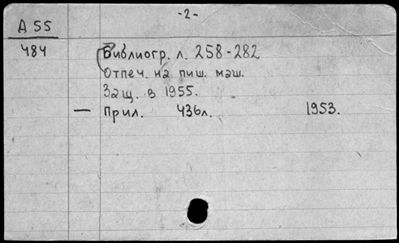 -2-
A 55
484
Библиогр. л. 258-282
Отпеч. на пиш. маш.
Защ. в 1955.
— Прил. 436л. 1953.